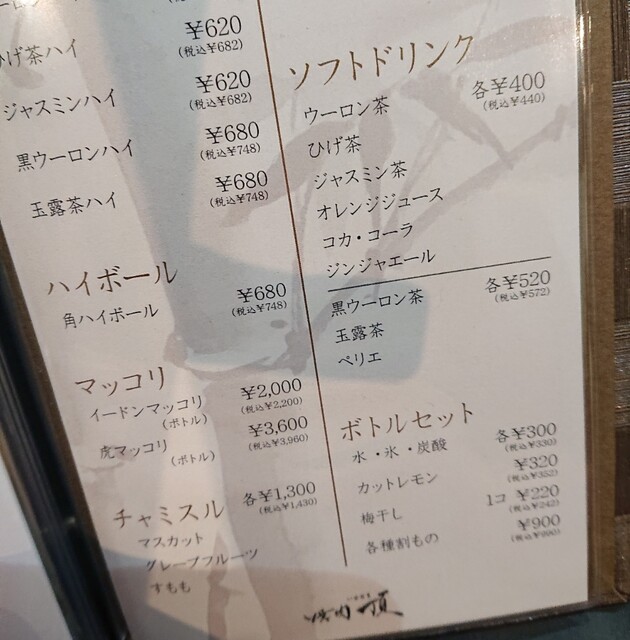 ¥620
ひげ茶ハイ (税込¥682)
¥620
ジャスミンハイ (税込¥682)
¥680
黒ウーロンハイ (税込¥748)
¥680
玉露茶ハイ (税込¥748)
ハイボール
角ハイボール ¥680
(税込¥748)
マッコリ
イードンマッコリ ¥2,000
(ボトル) (税込¥2,200)
虎マッコリ ¥3,600
(ボトル) (税込¥3,960)
チャミスル 各¥1,300
(税込¥1,430)
マスカット
グレープフルーツ
すもも
ソフトドリンク
ウーロン茶 各¥400
(税込¥440)
ひげ茶
ジャスミン茶
オレンジジュース
コカ・コーラ
ジンジャエール
黒ウーロン茶 各¥520
(税込¥572)
玉露茶
ペリエ
ボトルセット
水・氷・炭酸 各¥300
(税込¥330)
カットレモン ¥320
(税込¥352)
梅干し 1コ ¥220
(税込¥242)
各種割もの ¥900
(税込¥990)
焼肉 頂